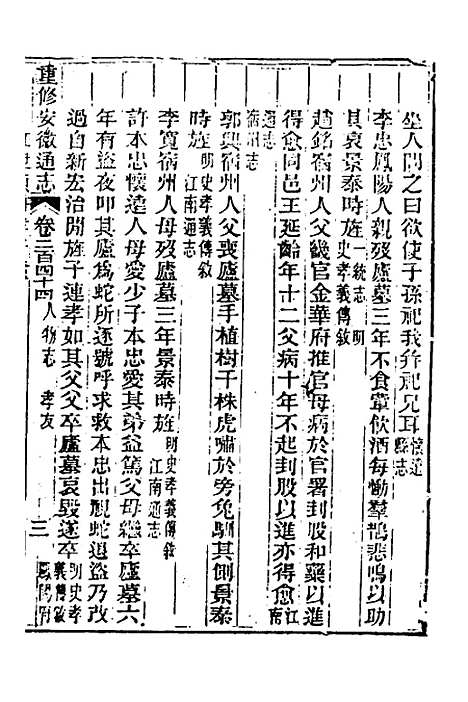 坐人問之曰欲使子孫祀我并祀兄耳懷遠縣志
李忠鳳陽人親歿廬墓三年不食葷飲酒每慟羣鵲悲鳴以助
其哀景泰時旌一統志 明史孝義傳敘
趙銘宿州人父畿官金華府推官母病於官署刲股和藥以進
得愈同邑王延齡年十二父病十年不起刲股以進亦得愈江南
通志
宿州志
郭興宿州人父喪廬墓手植樹千株虎嘯於旁兔馴其側景泰
時旌明史孝義傳敘江南通志
李寬宿州人母歿廬墓三年景泰時旌明史孝義傳敘江南通志
許本忠懷遠人母愛少子本忠愛其弟益篤父母繼卒廬墓六
年有盜夜叩其廬爲蛇所逐號呼求救本忠出視蛇退盜乃改
過自新宏治間旌子連孝如其父父卒廬墓哀毀遂卒明史孝義傳敘鳳陽府
重修安徽通志 卷二百四十四 人物志 孝友 三